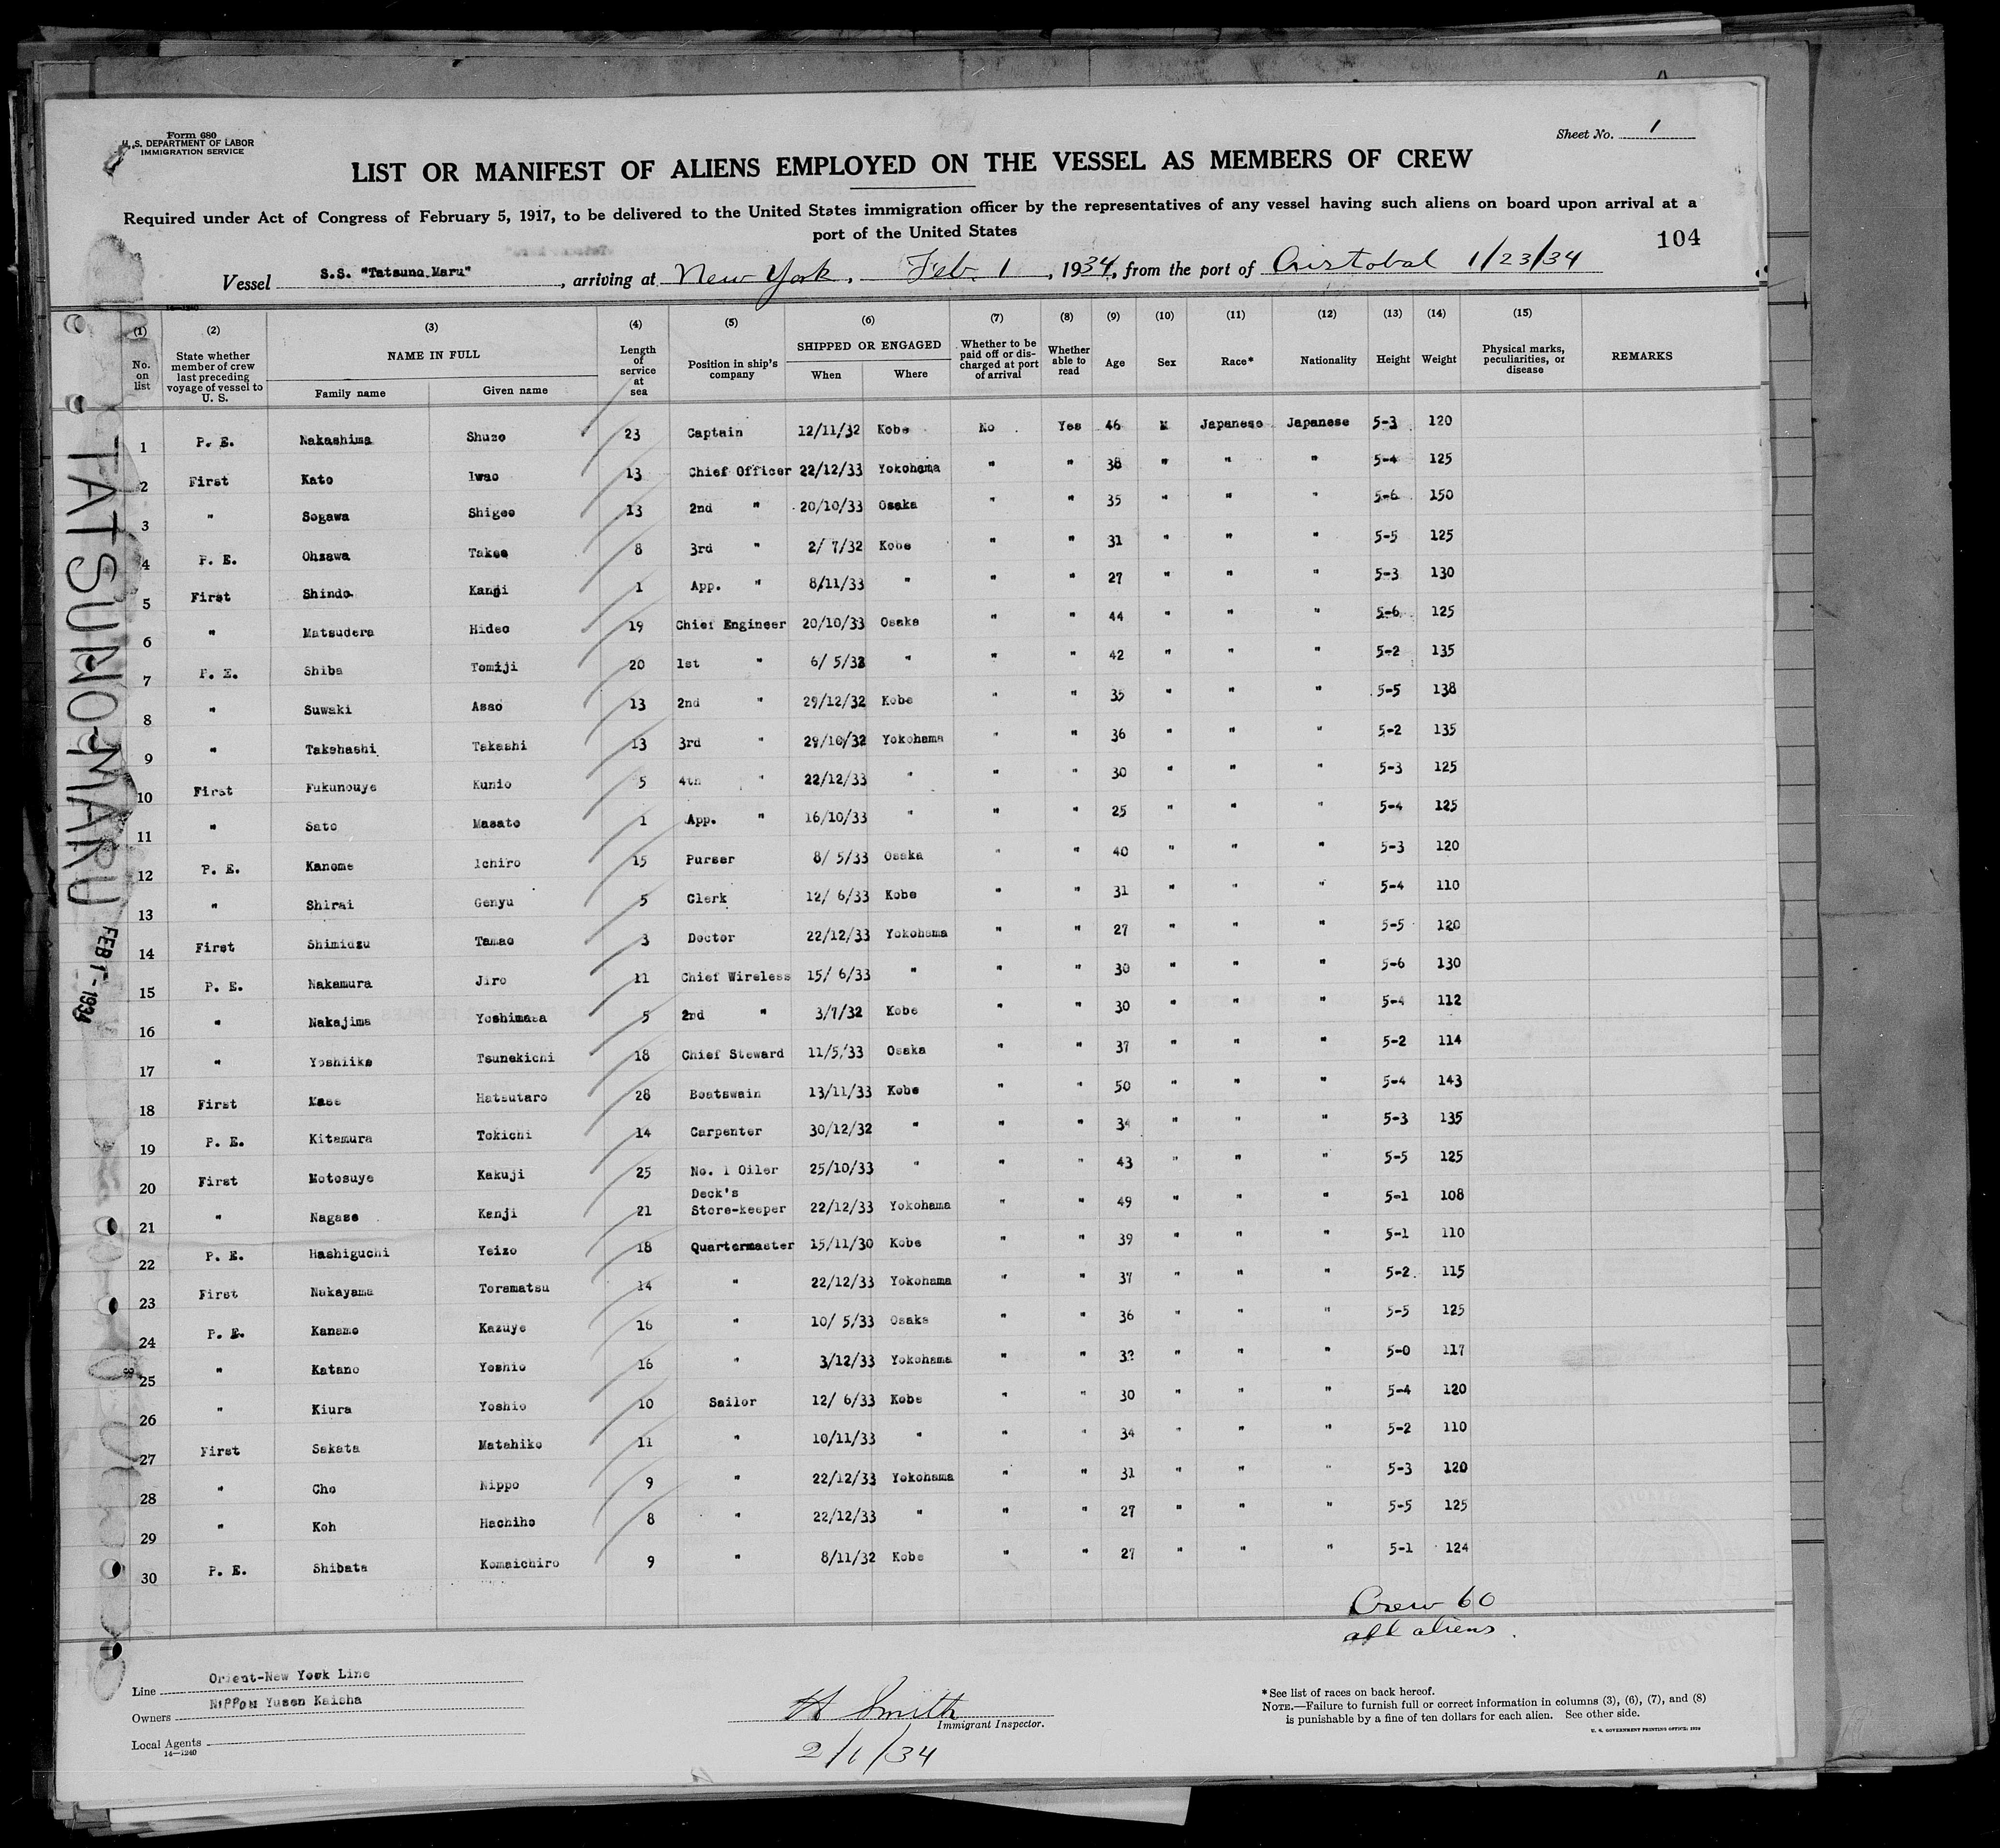 Form 680
U. S. DEPARTMENT OF LABOR
IMMIGRATION SERVICE
Sheet No. 1
LIST OR MANIFEST OF ALIENS EMPLOYED ON THE VESSEL AS MEMBERS OF CREW
Required under Act of Congress of February 5, 1917, to be delivered to the United States immigration officer by the representatives of any vessel having such aliens on board upon arrival at a
port of the United States
104
Vessel S.S. "Tatsuno Maru", arriving at New York, Feb. 1, 1934, from the port of Cristobal 1/23/34
(1) (2) (3) (4) (5) (6) (7) (8) (9) (10) (11) (12) (13) (14) (15)
No. on list
State whether member of crew last preceding voyage of vessel to U. S.
NAME IN FULL
Family name Given name
Length of service at sea
Position in ship's company
SHIPPED OR ENGAGED
When Where
Whether to be paid off or discharged at port of arrival
Whether able to read
Age Sex Race* Nationality Height Weight
Physical marks, peculiarities, or disease
REMARKS
1 P. E. Nakashima Shuzo 23 Captain 12/11/32 Kobe No Yes 46 M Japanese Japanese 5-3 120
2 First Kato Iwao 13 Chief Officer 22/12/33 Yokohama " " 38 " " " 5-4 125
3 " Sogawa Shigeo 13 2nd " 20/10/33 Osaka " " 35 " " " 5-6 150
4 P. E. Ohzawa Takeo 8 3rd " 2/ 7/32 Kobe " " 31 " " " 5-5 125
5 First Shindo Kanji 1 App. " 8/11/33 " " " 27 " " " 5-3 130
6 " Matsudera Hideo 19 Chief Engineer 20/10/33 Osaka " " 44 " " " 5-6 125
7 P. E. Shiba Tomiji 20 1st " 6/ 5/32 " " " 42 " " " 5-2 135
8 " Suwaki Asao 13 2nd " 29/12/32 Kobe " " 35 " " " 5-5 138
9 " Takahashi Takashi 13 3rd " 29/10/32 Yokohama " " 36 " " " 5-2 135
10 First Fukunouye Kunio 5 4th " 22/12/33 " " " 30 " " " 5-3 125
11 " Sato Masato 1 App. " 16/10/33 " " " 25 " " " 5-4 125
12 P. E. Kanome Ichiro 15 Purser 8/ 5/33 Osaka " " 40 " " " 5-3 120
13 " Shirai Genyu 5 Clerk 12/ 6/33 Kobe " " 31 " " " 5-4 110
14 First Shimidzu Tamao 3 Doctor 22/12/33 Yokohama " " 27 " " " 5-5 120
15 P. E. Nakamura Jiro 11 Chief Wireless 15/ 6/33 " " " 30 " " " 5-6 130
16 " Nakajima Yoshimasa 5 2nd " 3/7/32 Kobe " " 30 " " " 5-4 112
17 " Yoshiike Tsunekichi 18 Chief Steward 11/5/33 Osaka " " 37 " " " 5-2 114
18 First Mase Hatsutaro 28 Boatswain 13/11/33 Kobe " " 50 " " " 5-4 143
19 P. E. Kitamura Tokichi 14 Carpenter 30/12/32 " " " 34 " " " 5-3 135
20 First Motosuye Kakuji 25 No. 1 Oiler 25/10/33 " " " 43 " " " 5-5 125
21 " Nagase Kenji 21 Deck's Store-keeper 22/12/33 Yokohama " " 49 " " " 5-1 108
22 P. E. Hashiguchi Yeizo 18 Quartermaster 15/11/30 Kobe " " 39 " " " 5-1 110
23 First Nakayama Toramatsu 14 " 22/12/33 Yokohama " " 37 " " " 5-2 115
24 P. E. Kanamo Kazuye 16 " 10/ 5/33 Osaka " " 36 " " " 5-5 125
25 " Katano Yoshio 16 " 3/12/33 Yokohama " " 32 " " " 5-0 117
26 " Kiura Yoshio 10 Sailor 12/ 6/33 Kobe " " 30 " " " 5-4 120
27 First Sakata Matahiko 11 " 10/11/33 " " " 34 " " " 5-2 110
28 " Cho Nippo 9 " 22/12/33 Yokohama " " 31 " " " 5-3 120
29 " Koh Hachiho 8 " 22/12/33 " " " 27 " " " 5-5 125
30 P. E. Shibata Komaichiro 9 " 8/11/32 Kobe " " 27 " " " 5-1 124
Crew 60
all aliens.
TATSUNO-MARU FEB 1-1934
Line Orient-New York Line
Owners Nippon Yusen Kaisha
Local Agents
14—1240
H Smith
Immigrant Inspector.
2/1/34
*See list of races on back hereof.
NOTE.—Failure to furnish full or correct information in columns (3), (6), (7), and (8)
is punishable by a fine of ten dollars for each alien. See other side.